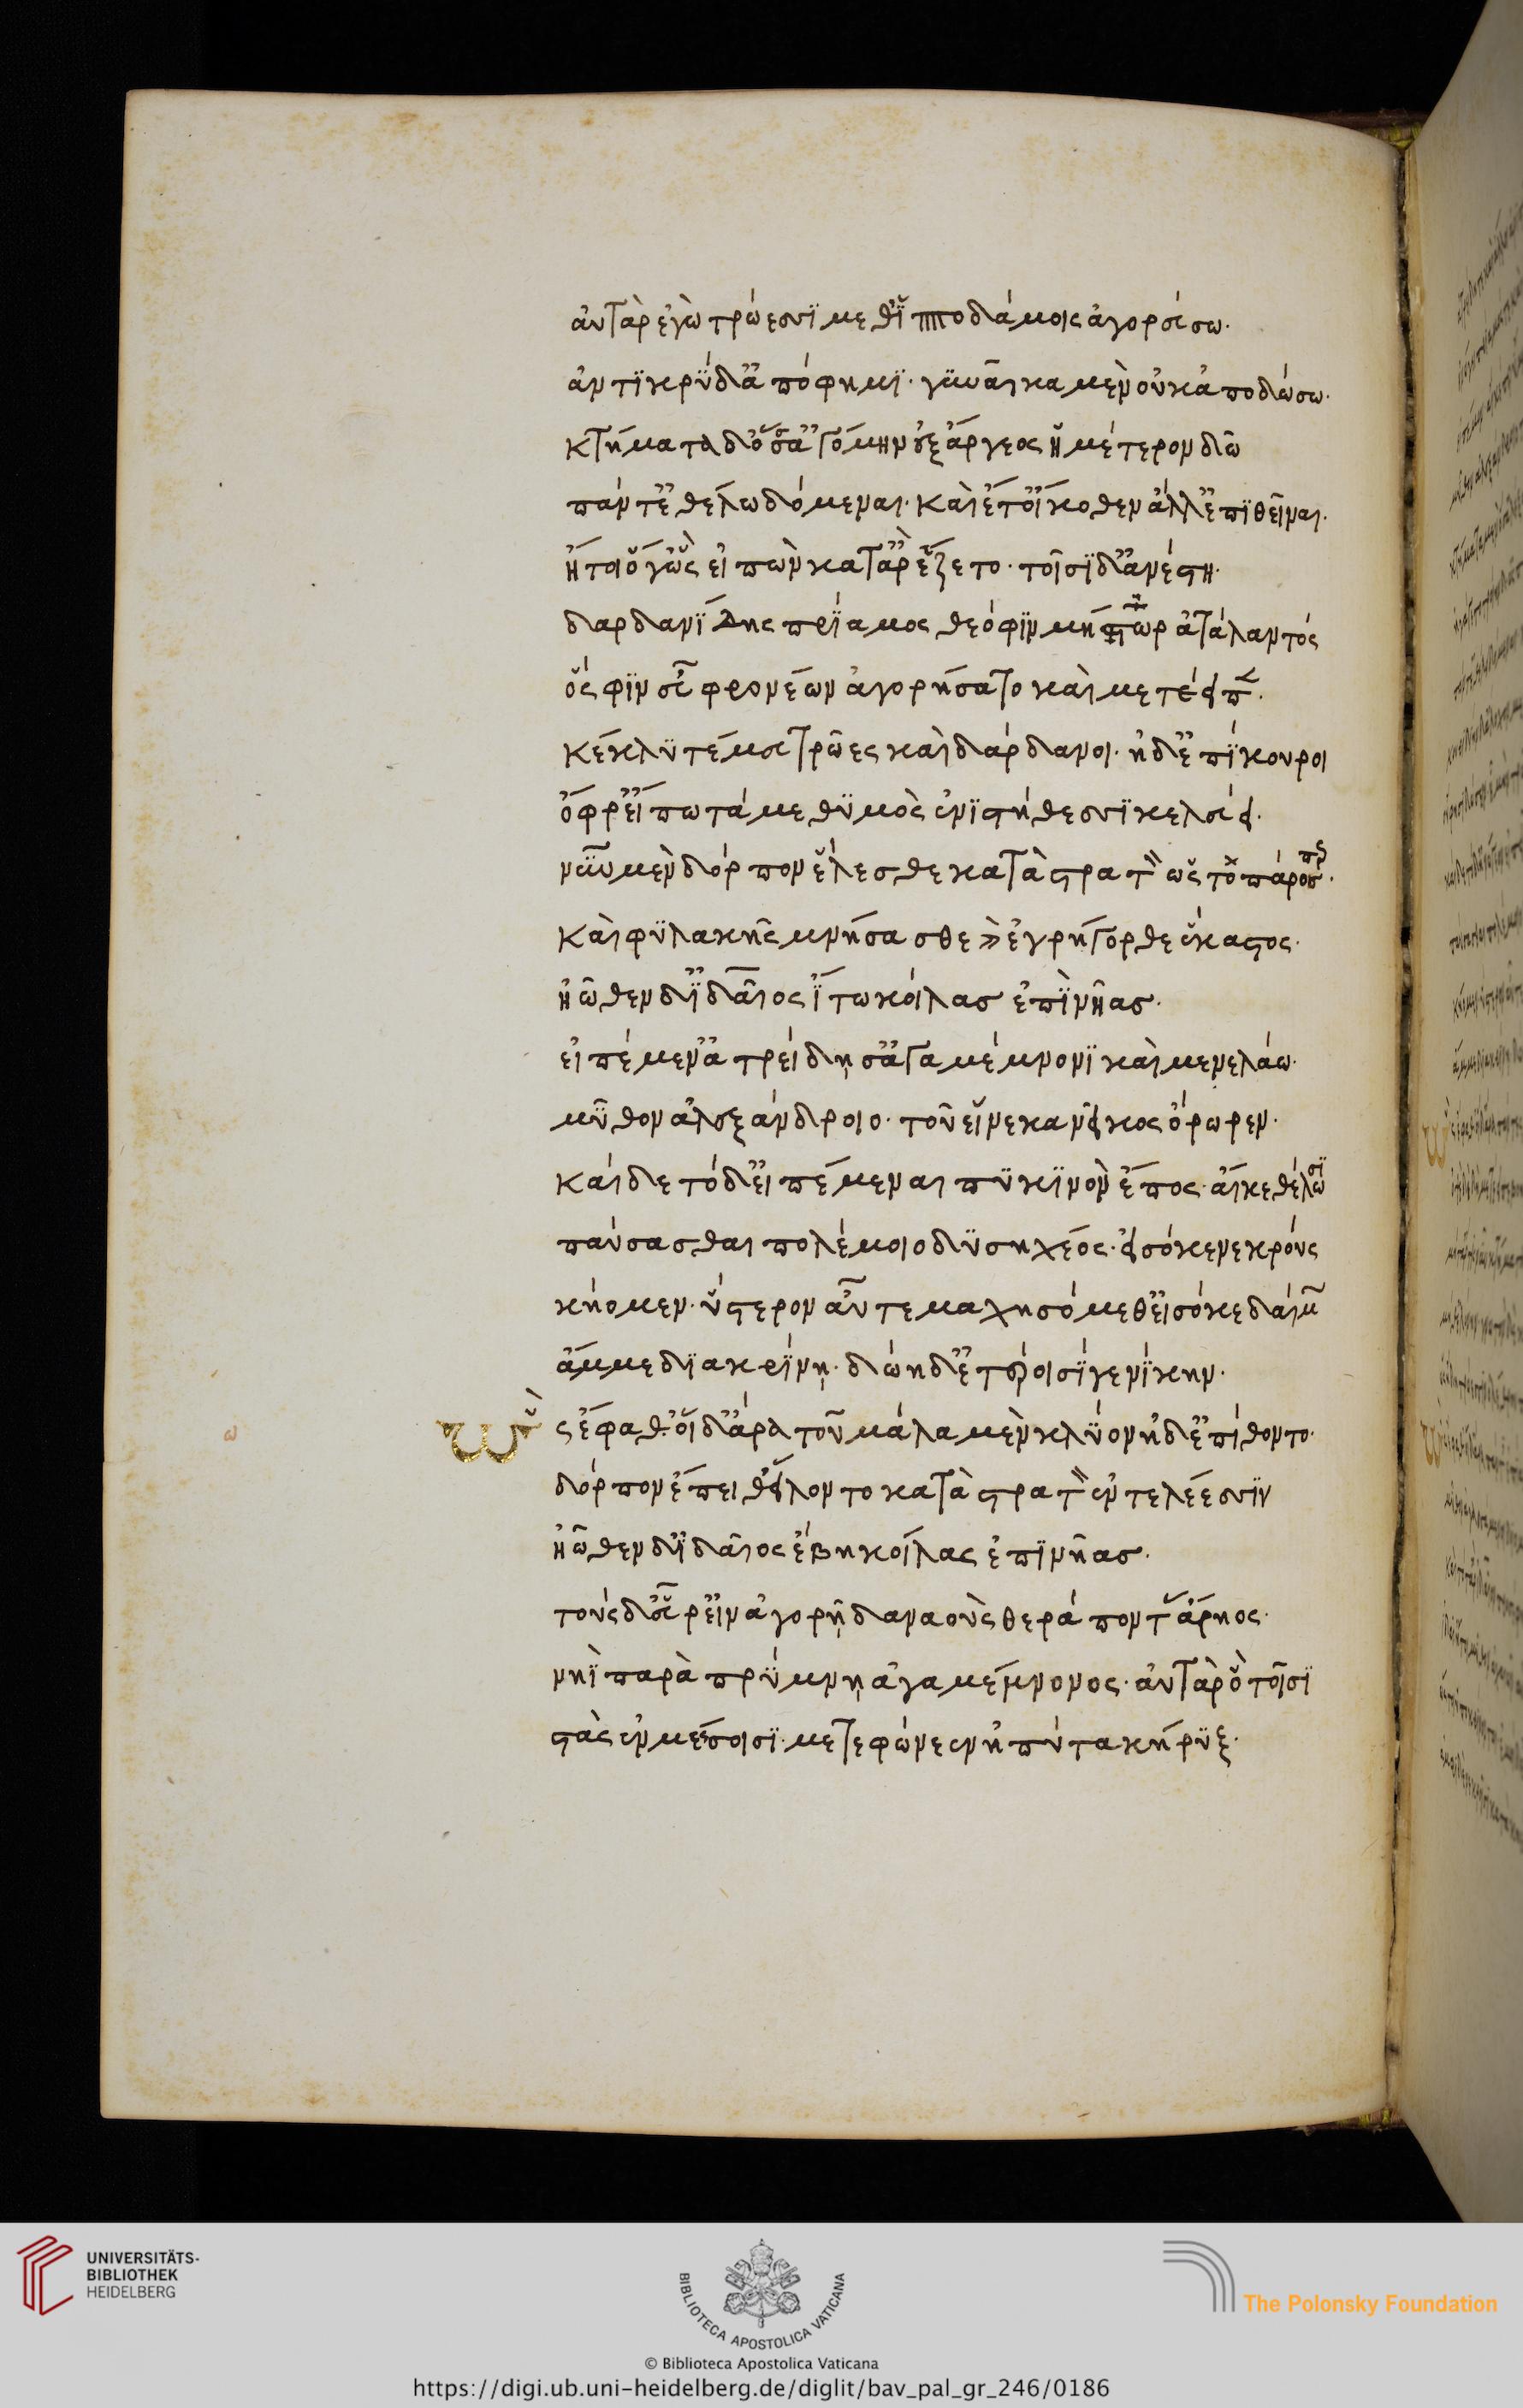 αὐτὰρ ἐγὼ τρώεσσϊ μεθ' ἱπποδάμοις ἀγορεύσω·
ἀντϊκρὺ δ' ἀπόφημϊ· γυναῖκα μὲν οὐκ ἀποδώσω·
κτήματα δ' ὅσσ' ἀγόμην ἐξ ἄργεος ἡμέτερον δῶ
πάντ' ἐθέλω δόμεναι· καὶ ἔτ' οἴκοθεν ἄλλ' ἐπιθεῖναι·
ἤτοι ὅγ' ὣς εἰπὼν κατ' ἄρ' ἕζετο· τοῖσϊ δ' ἀνέστη·
δαρδανίδης πρίαμος θεόφϊν μήστωρ ἀτάλαντος
ὅς φϊν εὖ φρονέων ἀγορήσατο καὶ μετέειπε·
κέκλυτέ μευ τρῶες καὶ δάρδανοι· ἠδ' ἐπίκουροι
ὄφρ' εἴπω τά με θυμὸς ἐνὶ στήθεσσι κελεύει·
νῦν μὲν δόρπον ἕλεσθε κατὰ στρατὸν ὡς τὸ πάρος περ·
καὶ φυλακῆς μνήσασθε καὶ ἐγρήγορθε ἕκαστος·
ἠῶθεν δ' ἰδαῖος ἴτω κοίλας ἐπὶ νῆας·
εἰπέμεν ἀτρείδῃς ἀγαμέμνονϊ καὶ μενελάω·
μῦθον ἀλεξάνδροιο· τοῦ εἵνεκα νεῖκος ὄρωρεν·
καὶ δὲ τόδ' εἰπέμεναι πυκϊνὸν ἔπος· αἴ κ' ἐθέλωσϊ
παύσασθαι πολέμοιο δυσηχέος· εἰσόκε νεκρούς
κήομεν· ὕστερον αὖτε μαχησόμεθ' εἰσόκε δαίμων
ἄμμε διακρίνῃ· δώη δ' ἑτέροισί γε νίκην·
ὣς ἔφαθ' οἱ δ' ἄρα τοῦ μάλα μὲν κλύον ἠδ' ἐπίθοντο·
δόρπον ἔπειθ' εἵλοντο κατὰ στρατὸν ἐν τελέεσσϊν
ἠῶθεν δ' ἰδαῖος ἔβη κοίλας ἐπὶ νῆας·
τοὺς δ' εὗρ' εἰν ἀγορῇ δαναοὺς θεράποντας ἄρηος·
νηῒ παρὰ πρύμνῃ ἀγαμέμνονος· αὐτὰρ ὃ τοῖσϊ
στὰς ἐν μέσοισϊ· μετεφώνεεν ἠπύτα κήρυξ·
UNIVERSITÄTS-
BIBLIOTHEK
HEIDELBERG
BIBLIOTECA APOSTOLICA VATICANA
The Polonsky Foundation
© Biblioteca Apostolica Vaticana
https://digi.ub.uni-heidelberg.de/diglit/bav_pal_gr_246/0186